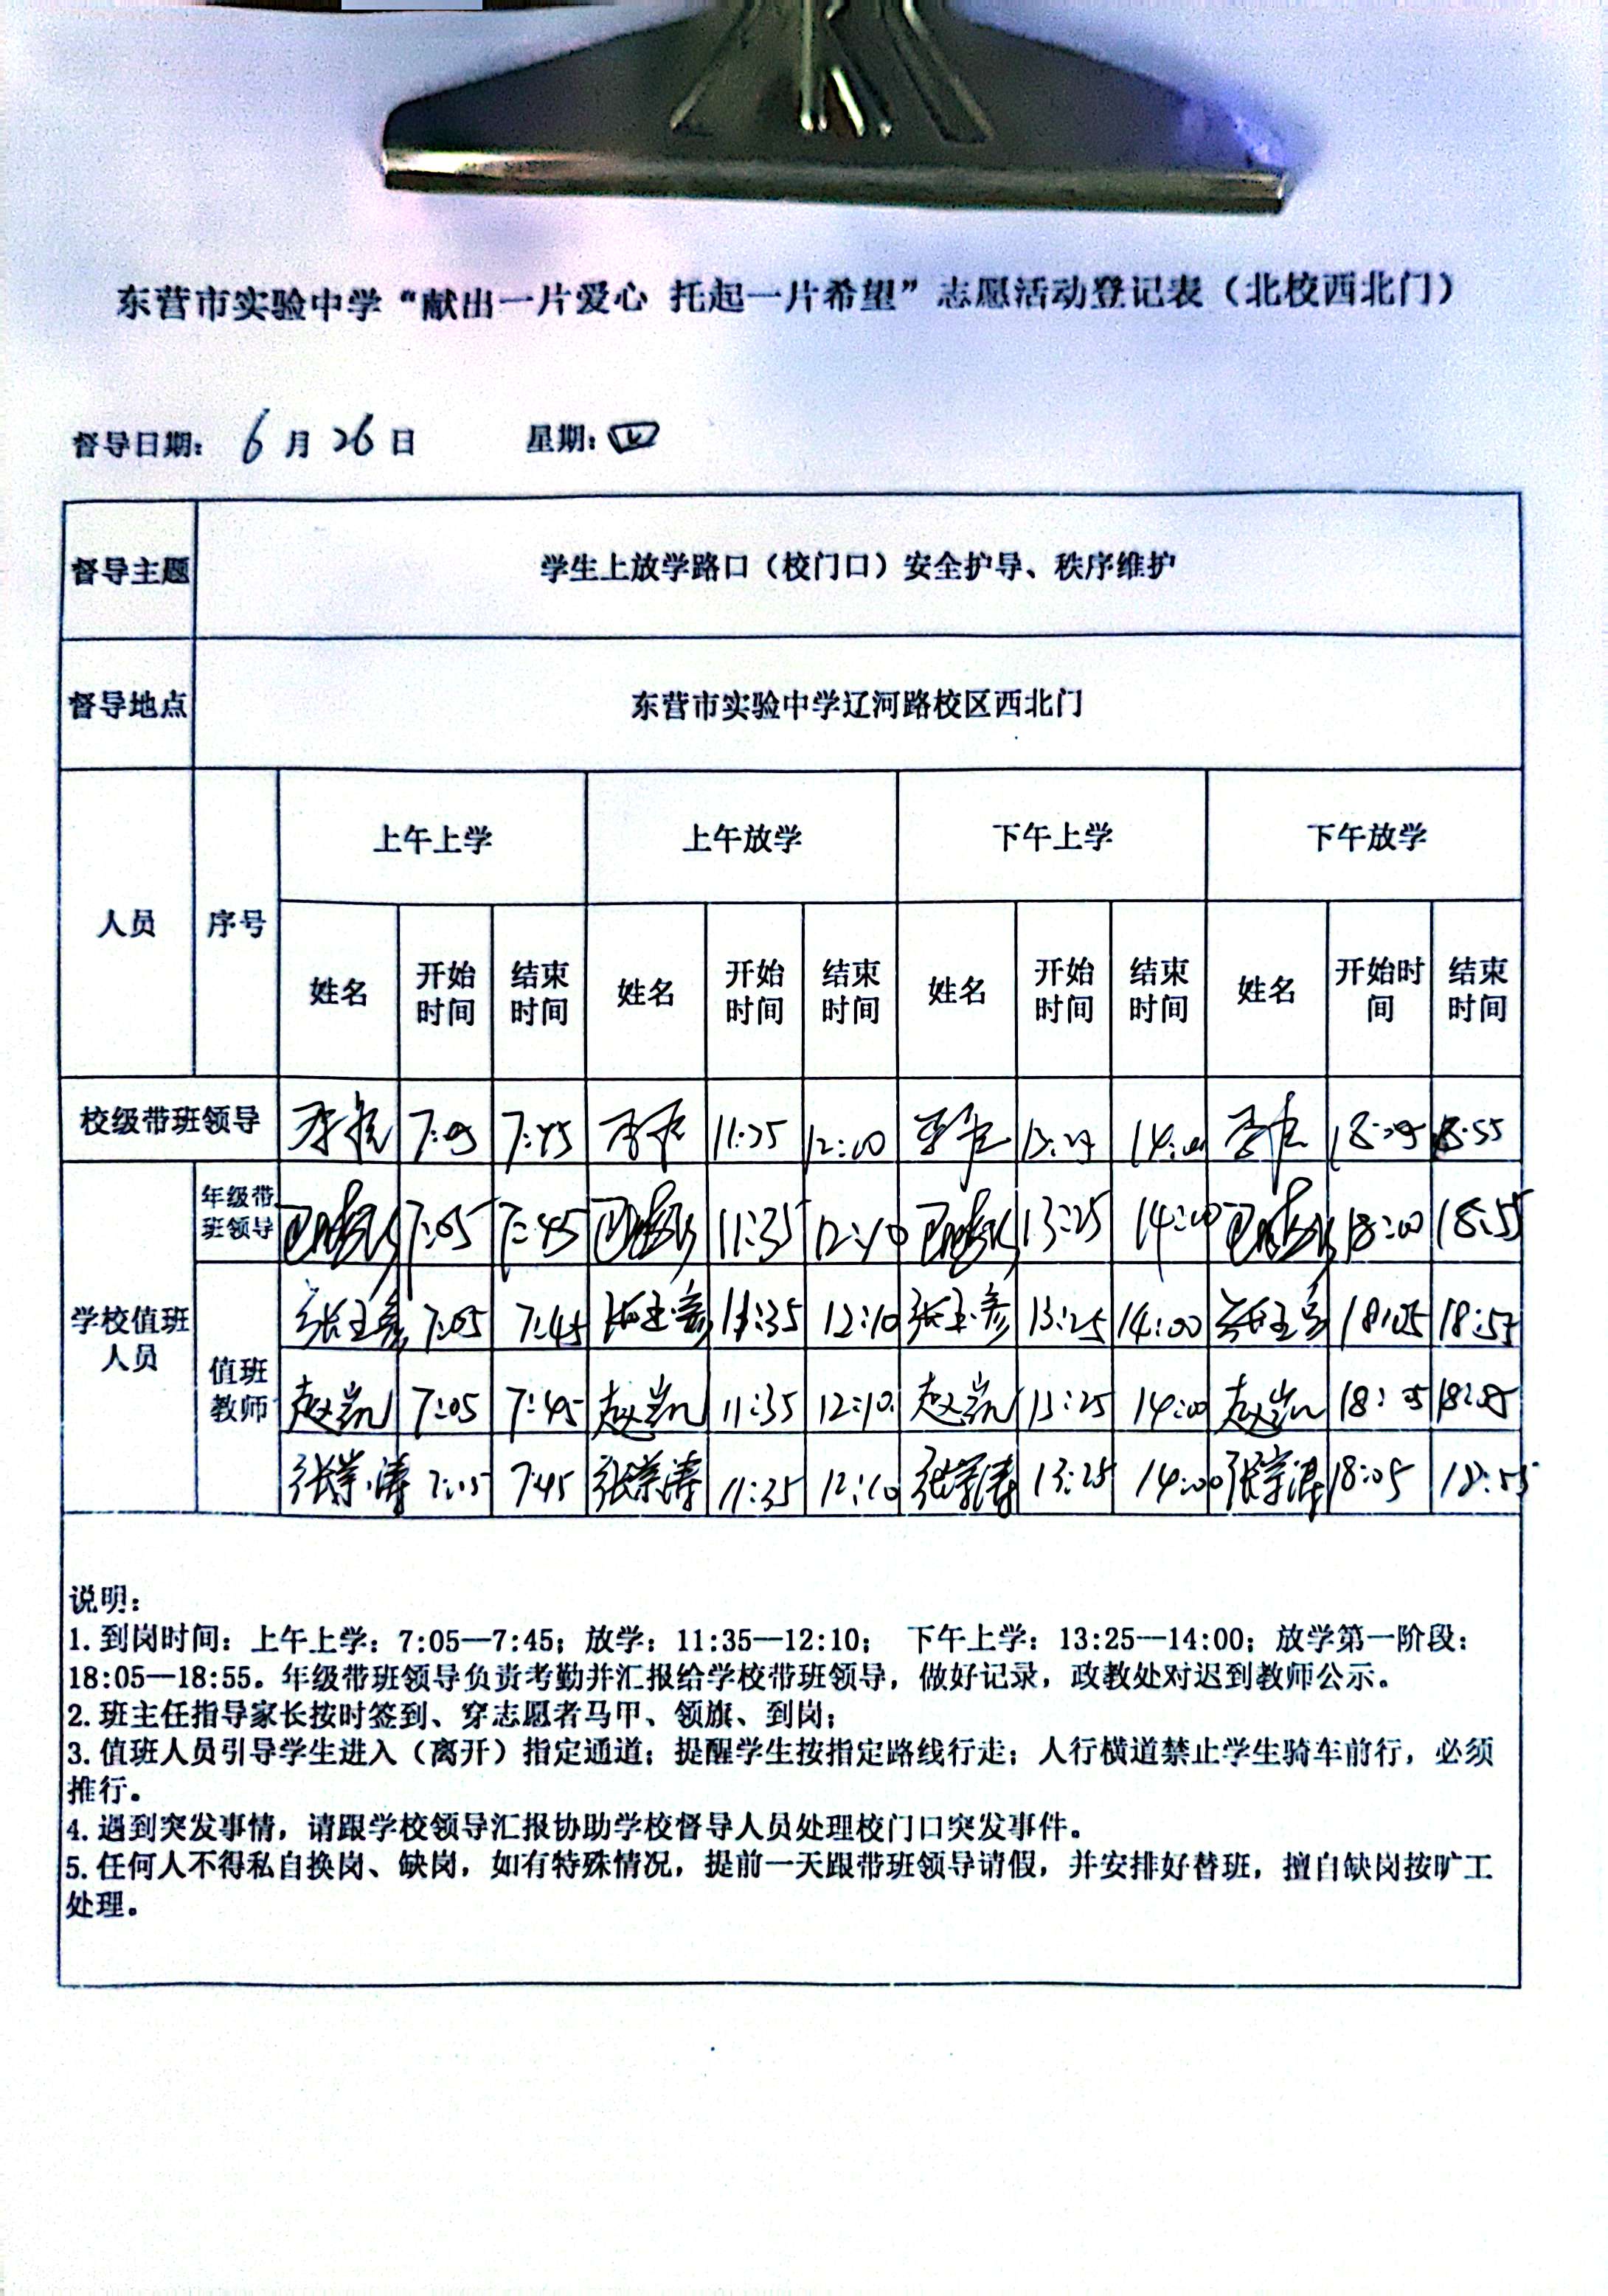 东营市实验中学“献出一片爱心 托起一片希望”志愿活动登记表（北校西北门）
督导日期： 6 月 26 日 星期：四
督导主题 学生上放学路口（校门口）安全护导、秩序维护
督导地点 东营市实验中学辽河路校区西北门
人员 序号 上午上学 上午放学 下午上学 下午放学
姓名 开始时间 结束时间 姓名 开始时间 结束时间 姓名 开始时间 结束时间 姓名 开始时间 结束时间
校级带班领导 7:05 7:45 11:35 12:00 14:00 18:55
学校值班人员
年级带班领导 7:05 7:45 11:35 12:10 13:25 14:00 18:00 18:55
值班教师
张玉彦 7:05 7:45 张玉彦 11:35 12:10 张玉彦 13:25 14:00 张玉彦 18:05 18:55
赵岩凯 7:05 7:45 赵岩凯 11:35 12:10 赵岩凯 13:25 14:00 赵岩凯 18:05
张崇涛 7:05 7:45 张崇涛 11:35 12:10 张崇涛 13:25 14:00 张崇涛 18:05 18:55
说明：
1.到岗时间：上午上学：7:05—7:45；放学：11:35—12:10； 下午上学：13:25—14:00；放学第一阶段：
18:05—18:55。年级带班领导负责考勤并汇报给学校带班领导，做好记录，政教处对迟到教师公示。
2.班主任指导家长按时签到、穿志愿者马甲、领旗、到岗；
3.值班人员引导学生进入（离开）指定通道；提醒学生按指定路线行走；人行横道禁止学生骑车前行，必须
推行。
4.遇到突发事情，请跟学校领导汇报协助学校督导人员处理校门口突发事件。
5.任何人不得私自换岗、缺岗，如有特殊情况，提前一天跟带班领导请假，并安排好替班，擅自缺岗按旷工
处理。